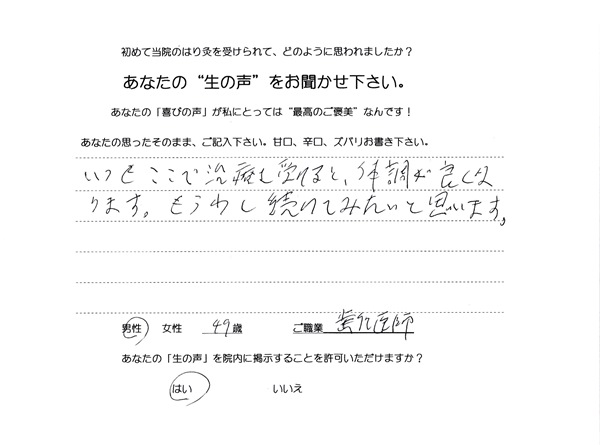 初めて当院のはり灸を受けられて、どのように思われましたか？
あなたの“生の声”をお聞かせ下さい。
あなたの「喜びの声」が私にとっては“最高のご褒美”なんです！
あなたの思ったそのまま、ご記入下さい。甘口、辛口、ズバリお書き下さい。
いつもここで治療を受けると、体調が良くな
ります。もう少し続けてみたいと思います。
男性 女性 49歳 ご職業 歯科医師
あなたの「生の声」を院内に掲示することを許可いただけますか？
はい いいえ